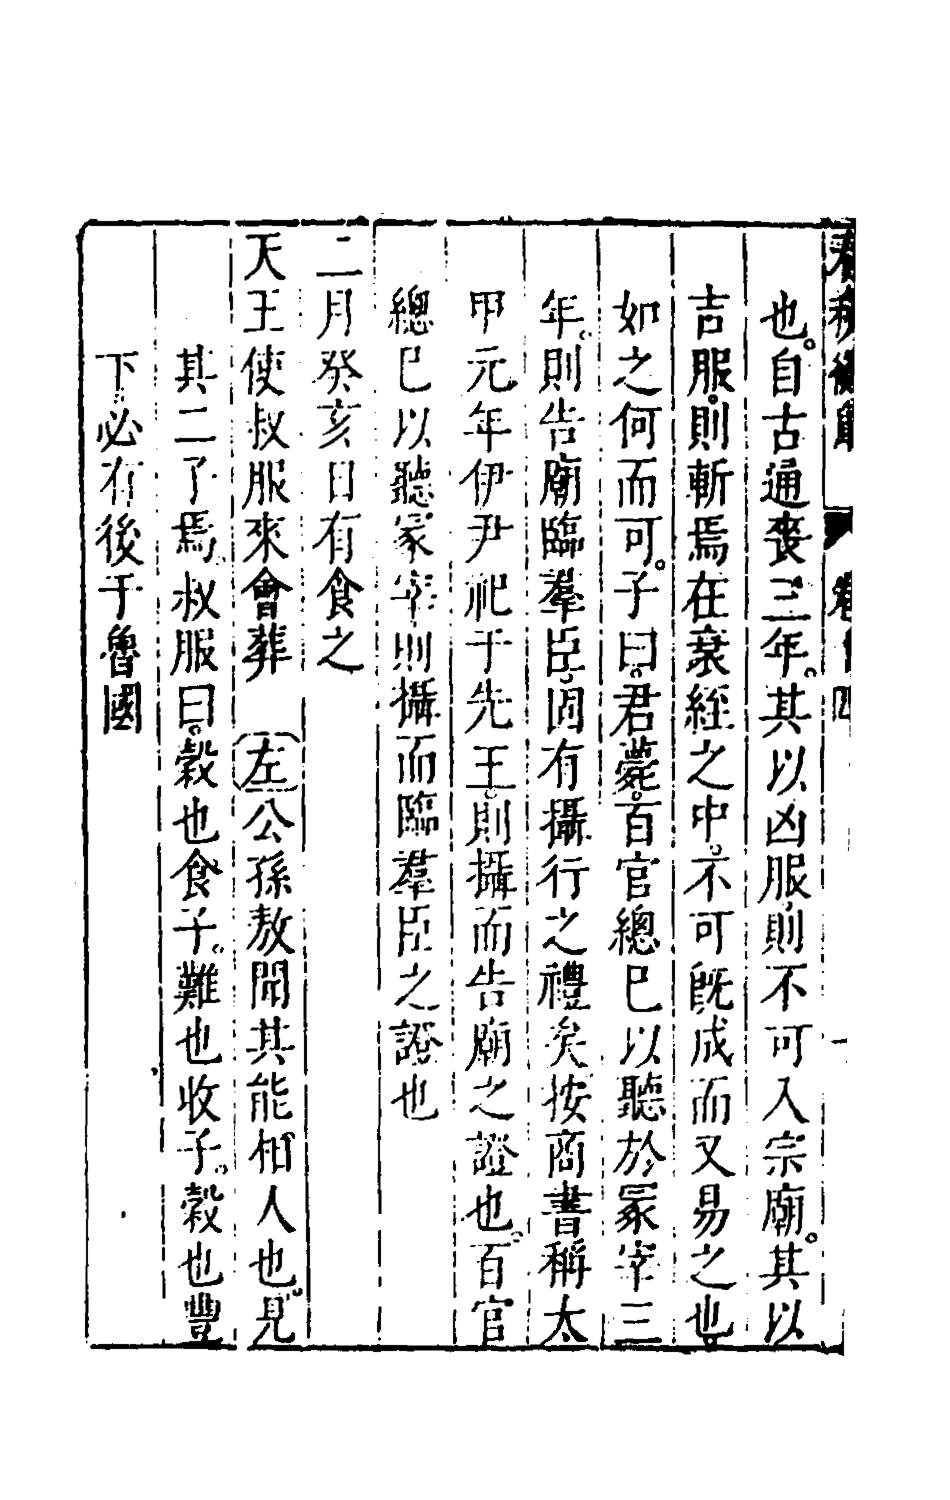 也自古通喪三年其以凶服則不可入宗廟其以
吉服則斬焉在衰絰之中不可旣成而又易之也
如之何而可子曰君薨百官總已以聽於冢宰三
年則告廟臨羣臣固有攝行之禮矣按商書稱太
甲元年伊尹祀于先王則攝而告廟之證也百官
總已以聽冢宰則攝而臨羣臣之證也
二月癸亥日有食之
天王使叔服來會葬 左公孫敖聞其能相人也見
其二子焉叔服曰穀也食子難也收子穀也豐
下必有後于魯國